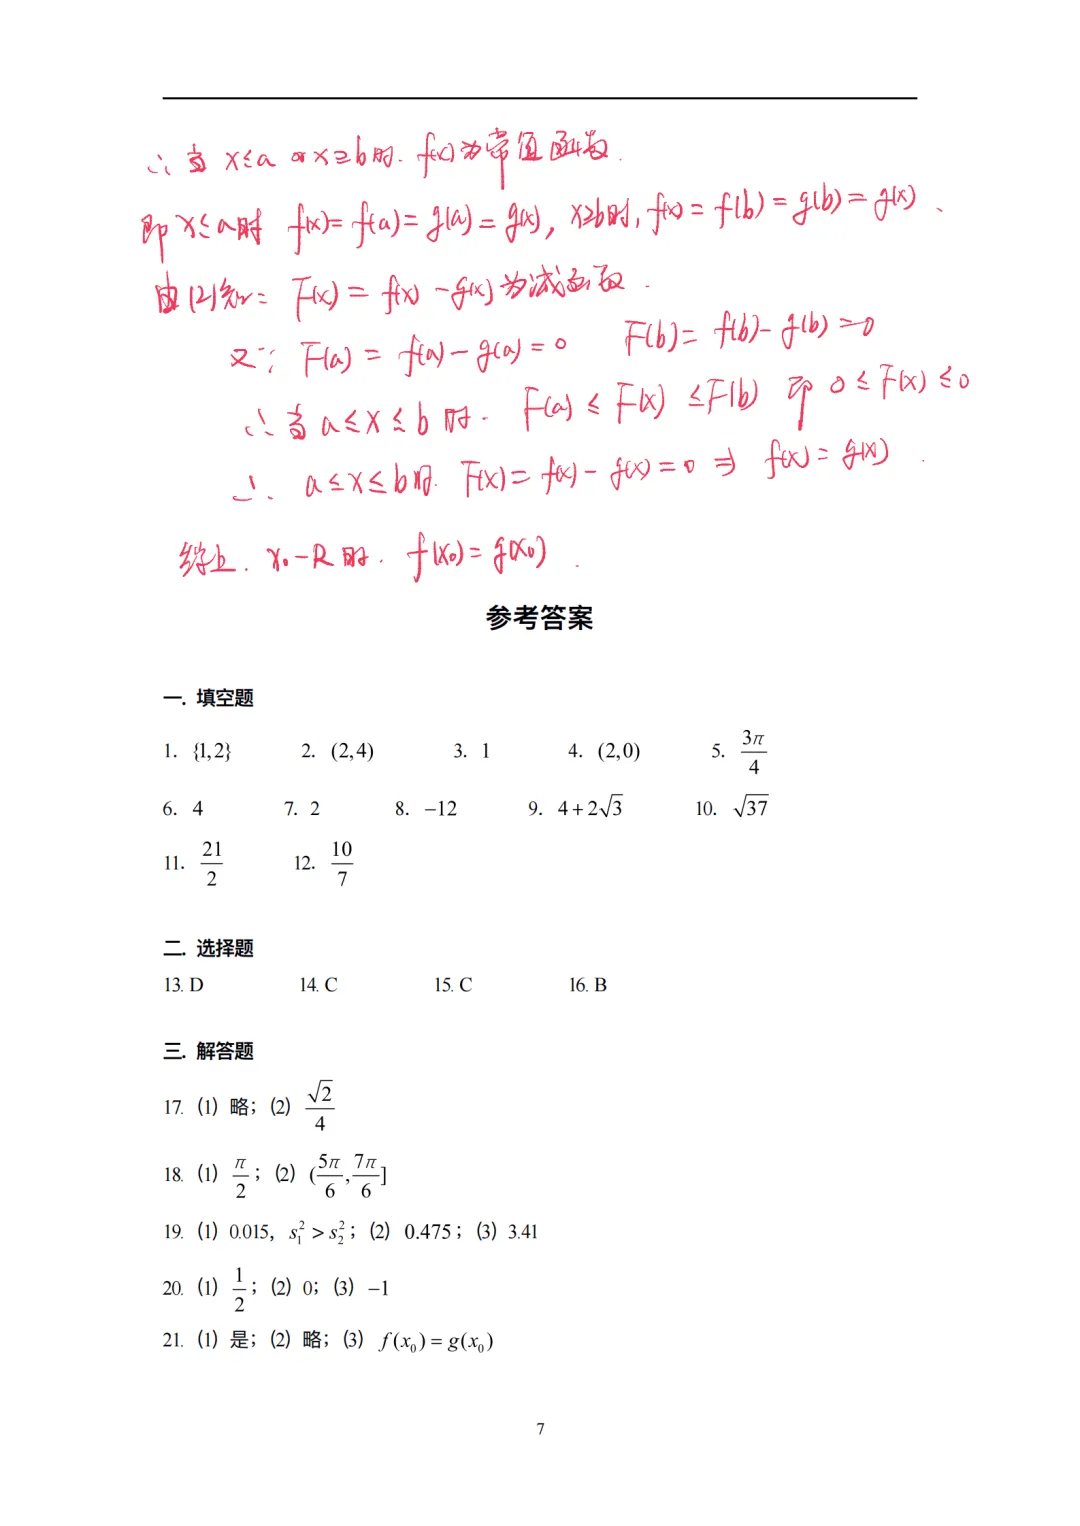 ∴当 x≤a or x≥b时. f(x)为常值函数.
即 x≤a时 f(x)=f(a)=g(a)=g(x), x≥b时, f(x)=f(b)=g(b)=g(x).
由(2)知: F(x)=f(x)-g(x)为减函数.
又∵ F(a)=f(a)-g(a)=0 F(b)=f(b)-g(b)=0
∴当 a≤x≤b 时. F(a)≤F(x)≤F(b) 即 0≤F(x)≤0
∴ a≤x≤b时. F(x)=f(x)-g(x)=0 ⇒ f(x)=g(x).
综上. x₀-R时. f(x₀)=g(x₀).
参考答案
一. 填空题
1. {1,2} 2. (2,4) 3. 1 4. (2,0) 5. 3π/4
6. 4 7. 2 8. −12 9. 4+2√3 10. √37
11. 21/2 12. 10/7
二. 选择题
13. D 14. C 15. C 16. B
三. 解答题
17. (1) 略; (2) √2/4
18. (1) π/2; (2) (5π/6, 7π/6]
19. (1) 0.015, s₁² > s₂²; (2) 0.475; (3) 3.41
20. (1) 1/2; (2) 0; (3) −1
21. (1) 是; (2) 略; (3) f(x₀)=g(x₀)
7